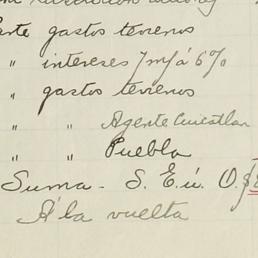 gastos terrenos
" intereses 7 m/ á 6%
" gastos terrenos
" " Agente Cuicatlan
" " Puebla
Suma - S. E. ú. O. $
Á la vuelta